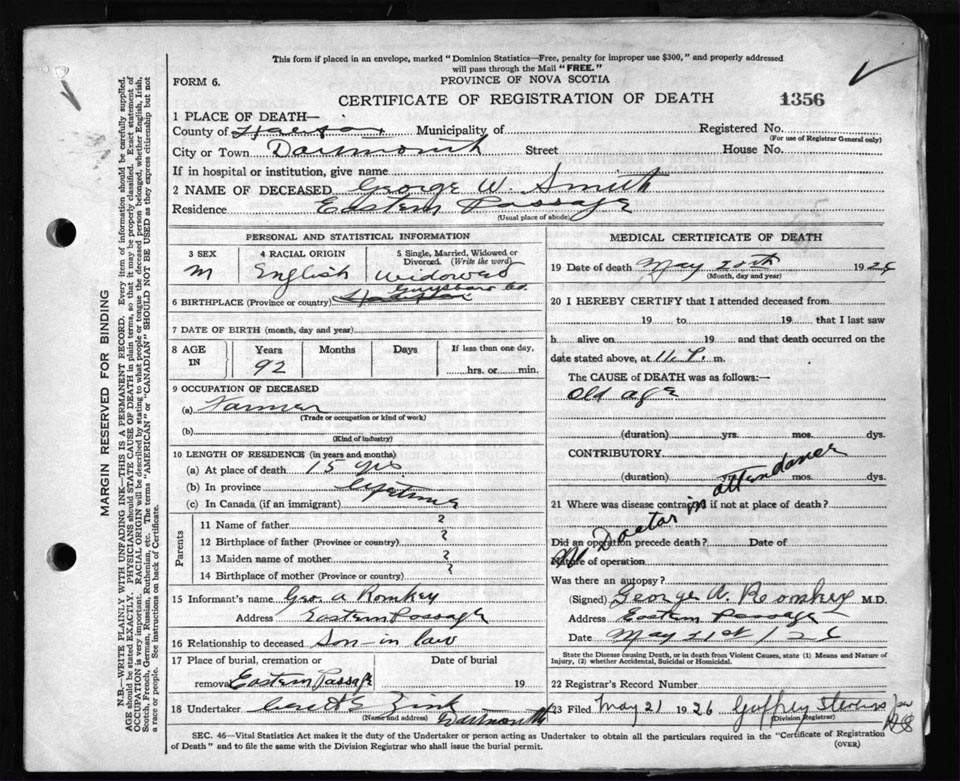 This form if placed in an envelope, marked "Dominion Statistics—Free, penalty for improper use $300," and properly addressed
will pass through the Mail "FREE."
FORM 6.
PROVINCE OF NOVA SCOTIA
CERTIFICATE OF REGISTRATION OF DEATH
1356
1 PLACE OF DEATH—
County of Halifax Municipality of Registered No.
(For use of Registrar General only)
City or Town Dartmouth Street House No.
If in hospital or institution, give name
2 NAME OF DECEASED George W. Smith
Residence Eastern Passage
(Usual place of abode)
PERSONAL AND STATISTICAL INFORMATION
3 SEX 4 RACIAL ORIGIN 5 Single, Married, Widowed or Divorced. (Write the word)
M English Widowed
Guysboro Co.
6 BIRTHPLACE (Province or country)
7 DATE OF BIRTH (month, day and year)
8 AGE IN Years Months Days If less than one day,
92 hrs. or min.
9 OCCUPATION OF DECEASED
(a) Farmer
(Trade or occupation or kind of work)
(b)
(Kind of industry)
10 LENGTH OF RESIDENCE (in years and months)
(a) At place of death 15 yrs
(b) In province lifetime
(c) In Canada (if an immigrant)
Parents
11 Name of father ?
12 Birthplace of father (Province or country) ?
13 Maiden name of mother ?
14 Birthplace of mother (Province or country) ?
15 Informant's name Geo. A Romkey
Address Eastern Passage
16 Relationship to deceased Son in law
17 Place of burial, cremation or Date of burial
removal Eastern Passage 19
18 Undertaker Zink
(Name and address) Dartmouth
MEDICAL CERTIFICATE OF DEATH
19 Date of death May 20th 1926
(Month, day and year)
20 I HEREBY CERTIFY that I attended deceased from
19 to 19 that I last saw
h alive on 19 and that death occurred on the
date stated above, at 11. P. m.
The CAUSE of DEATH was as follows:—
Old age
(duration) yrs. mos. dys.
CONTRIBUTORY
(duration) yrs. mos. dys.
21 Where was disease contracted if not at place of death?
No Doctor in attendance
Did an operation precede death? Date of
Nature of operation
Was there an autopsy?
(Signed) George A. Romkey M.D.
Address Eastern Passage
Date May 21st / 26
State the Disease causing Death, or in death from Violent Causes, state (1) Means and Nature of
Injury, (2) whether Accidental, Suicidal or Homicidal.
22 Registrar's Record Number
23 Filed May 21 1926 Geoffrey Stevens
(Division Registrar)
SEC. 46—Vital Statistics Act makes it the duty of the Undertaker or person acting as Undertaker to obtain all the particulars required in the "Certificate of Registration
of Death" and to file the same with the Division Registrar who shall issue the burial permit.
(OVER)
MARGIN RESERVED FOR BINDING
N.B.—WRITE PLAINLY WITH UNFADING INK—THIS IS A PERMANENT RECORD. Every item of information should be carefully supplied.
AGE should be stated EXACTLY. PHYSICIANS should STATE CAUSE OF DEATH in plain terms, so that it may be properly classified. Exact statement of
OCCUPATION is very important. RACIAL ORIGIN will be described by stating to what people or tongue the deceased person belonged, whether English, Irish,
Scotch, French, German, Russian, Ruthenian, etc. The terms "AMERICAN" or "CANADIAN" SHOULD NOT BE USED as they express citizenship but not
a race or people. See instructions on back of Certificate.